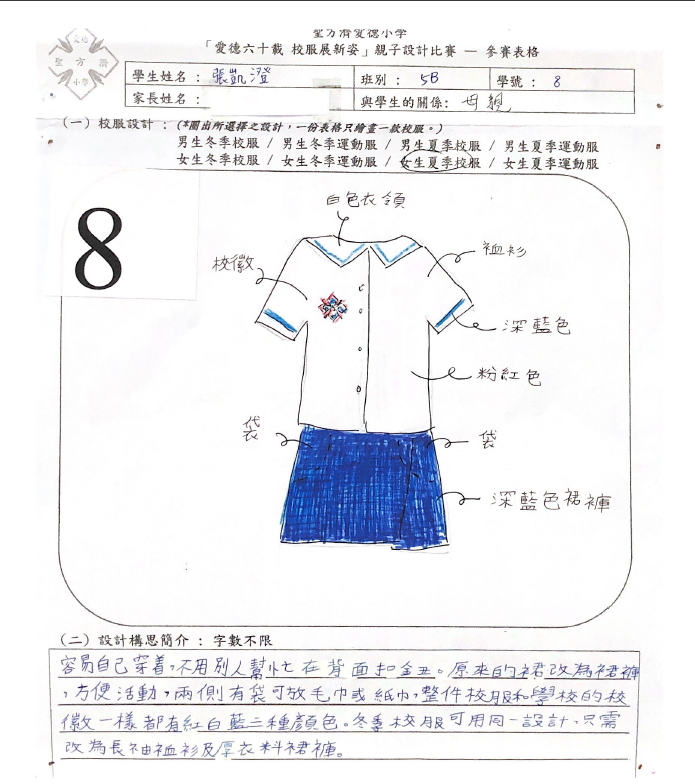 聖方濟愛德小學
「愛德六十載 校服展新姿」親子設計比賽 — 參賽表格
愛德
聖方濟
小學
學生姓名： 張凱澄 班別： 5B 學號： 8
家長姓名： 與學生的關係： 母親
(一) 校服設計： (*圈出所選擇之設計，一份表格只繪畫一款校服。)
男生冬季校服 / 男生冬季運動服 / 男生夏季校服 / 男生夏季運動服
女生冬季校服 / 女生冬季運動服 / 女生夏季校服 / 女生夏季運動服
8
白色衣領
校徽
裇衫
深藍色
粉紅色
袋
袋
深藍色裙褲
(二) 設計構思簡介： 字數不限
容易自己穿着，不用別人幫忙在背面扣鈕。原來的裙改為裙褲
，方便活動，兩側有袋可放毛巾或紙巾，整件校服和學校的校
徽一樣都有紅白藍三種顏色。冬季校服可用同一設計，只需
改為長袖裇衫及厚衣料裙褲。